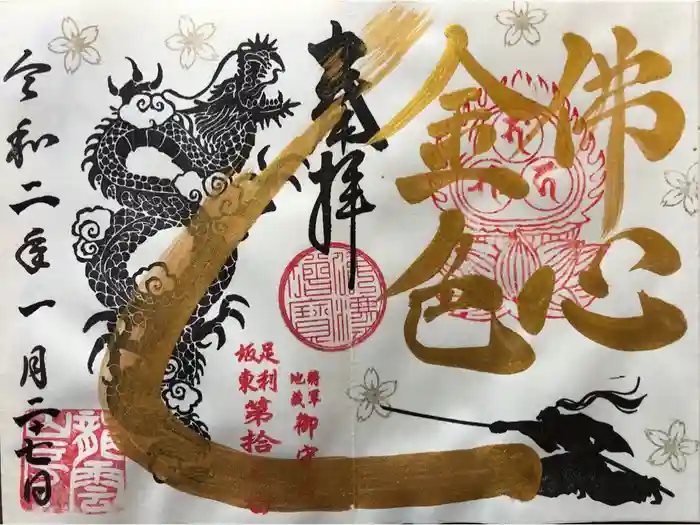 佛心
金色
奉拝
将軍
地蔵
御守
足利
坂東第拾
令和二年一月二十七日
龍雲